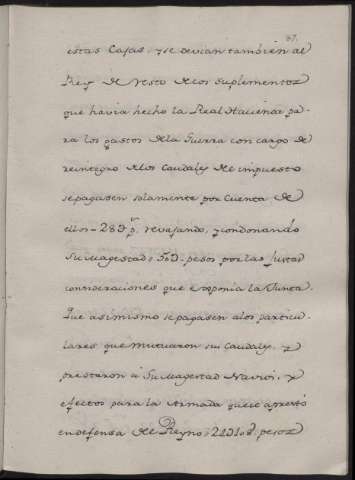 67.
estas Cajas: y se devian tambien al
Rey de resto de los suplementos
que havia hecho la Real Hacienda pa-
ra los gastos de la Guerra con cargo de
reintegro de los Caudales de impuesto
se pagasen solamente por cuenta de
ellos - 28 p. revajando, y condonando
Su Magestad: pesos por las justas
consideraciones que exponia la Junta.
Que asimismo se pagasen a los particu-
lares que mutuaron sus Caudales, y
prestaron a Su Magestad Navios, y
efectos para la Armada que se aprestó
en defensa del Reyno: pesos